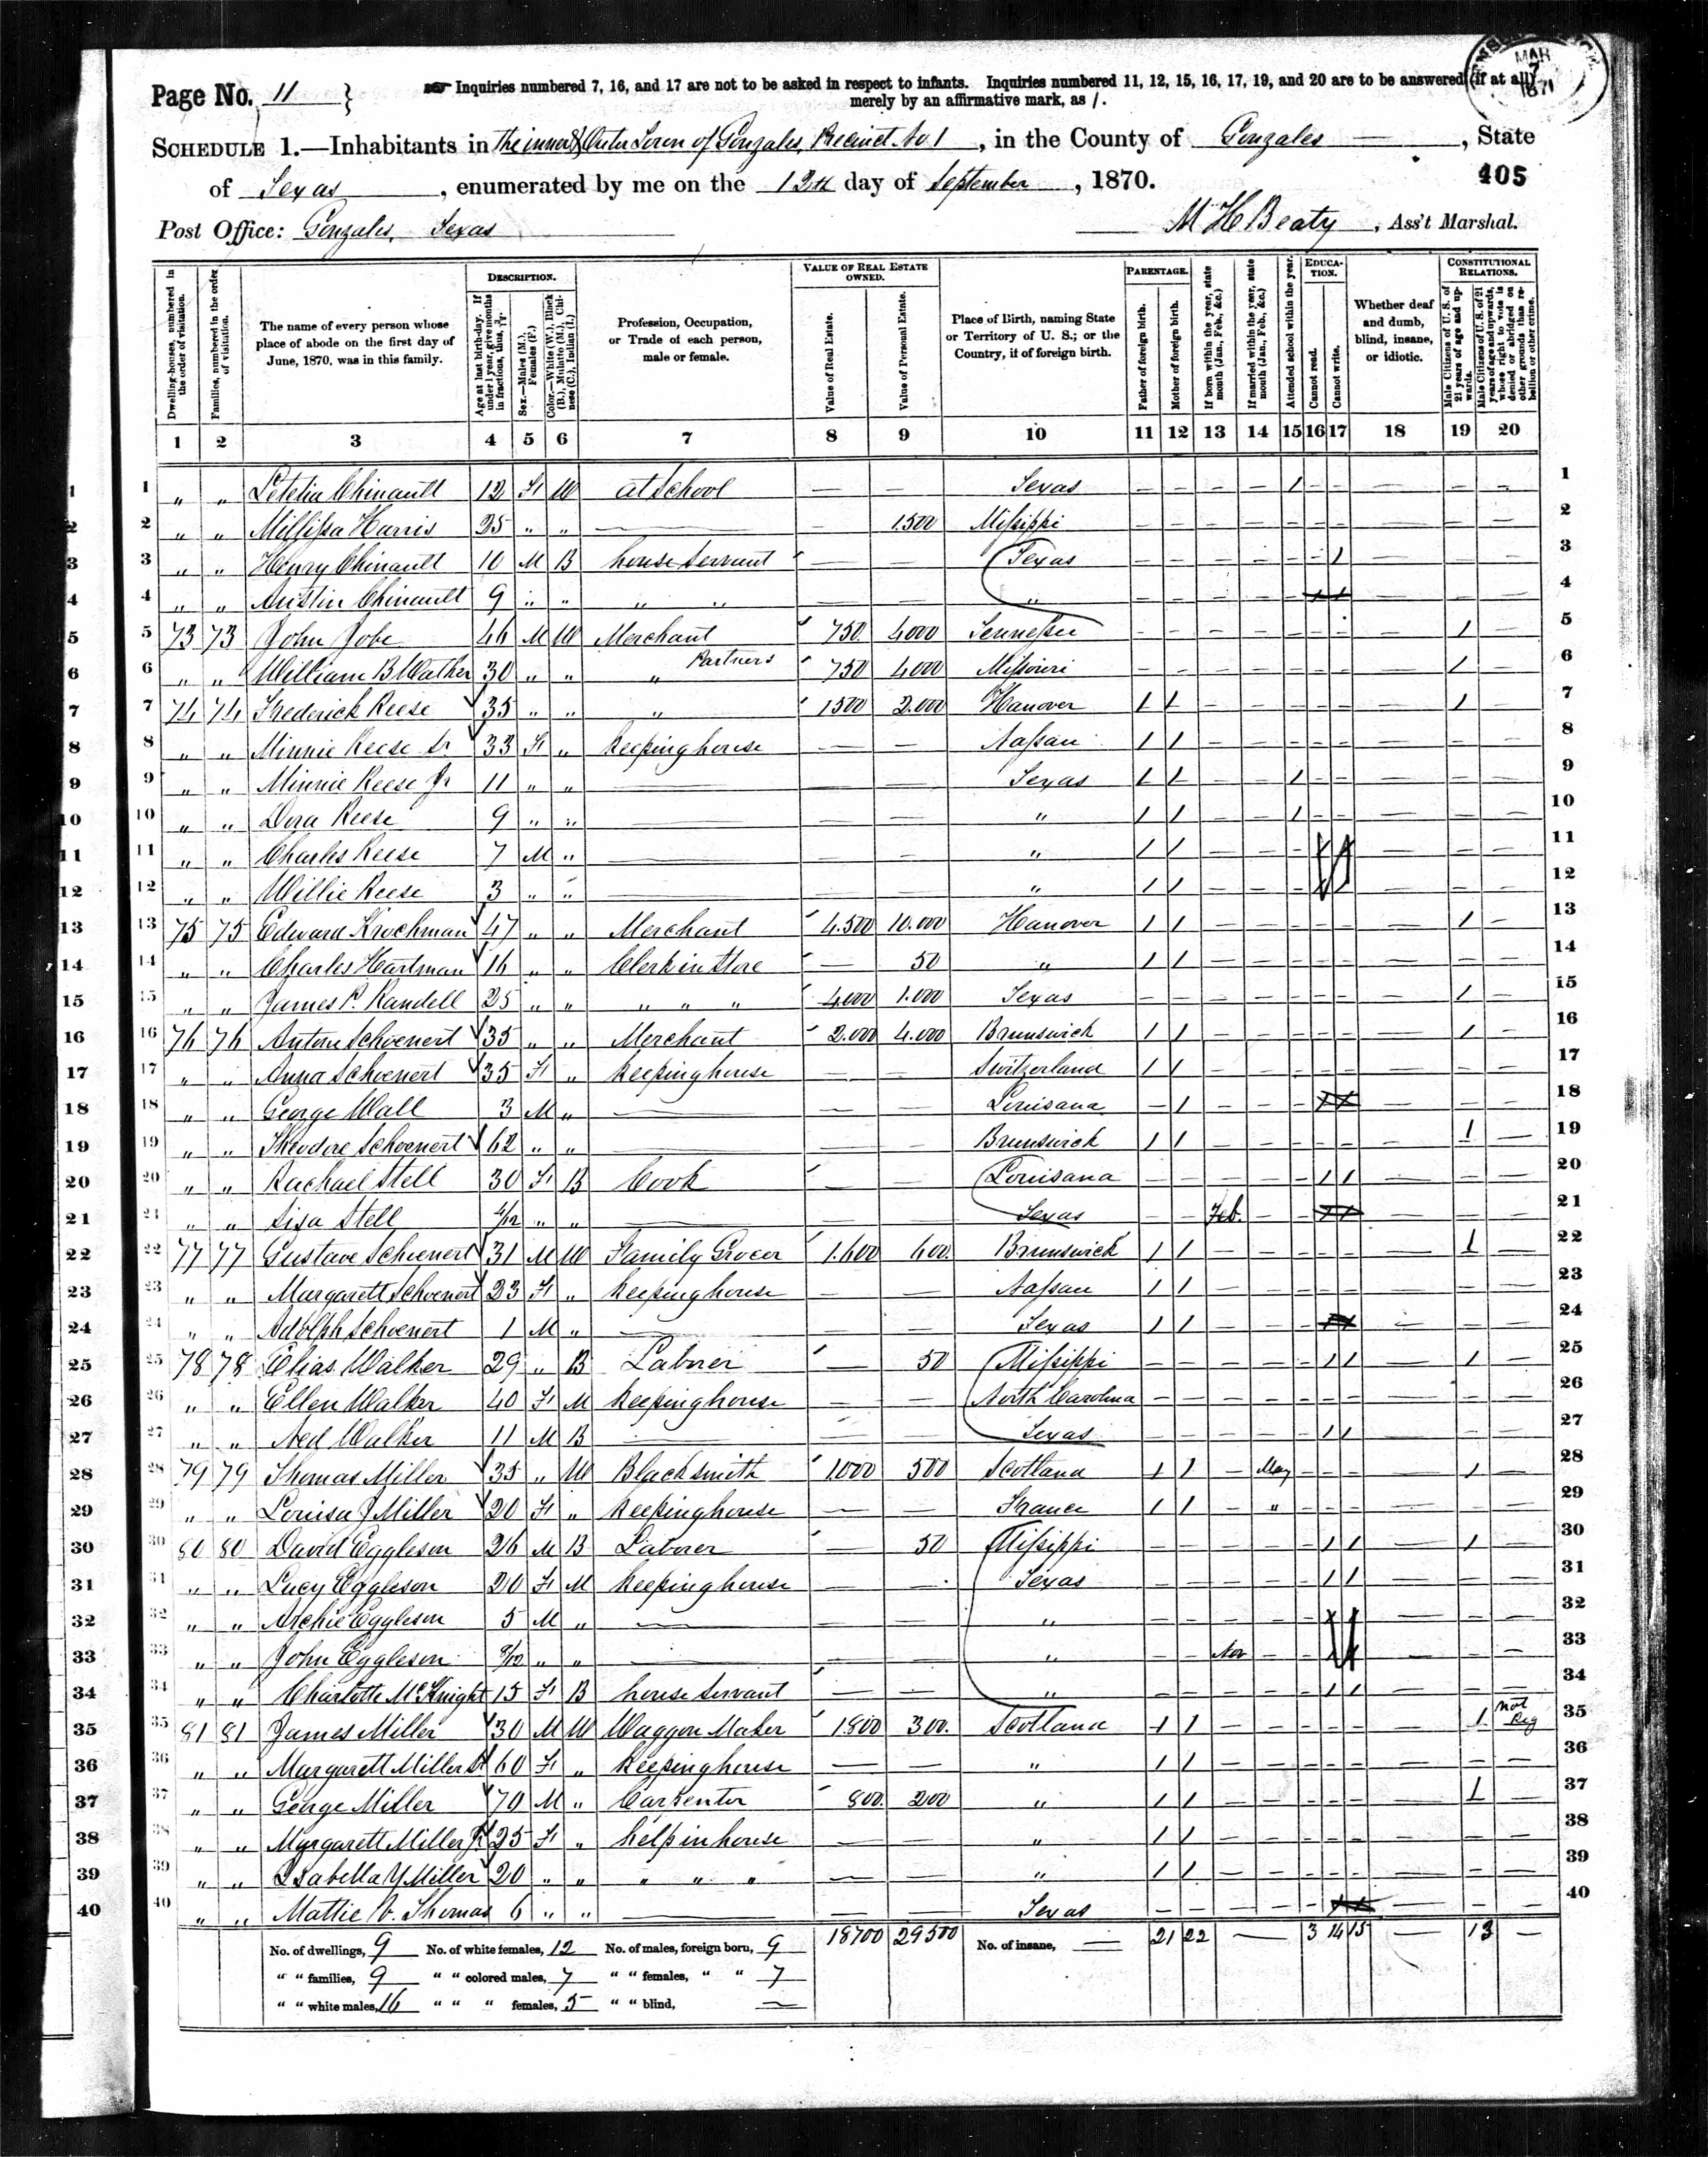 Page No. 11
Inquiries numbered 7, 16, and 17 are not to be asked in respect to infants. Inquiries numbered 11, 12, 15, 16, 17, 19, and 20 are to be answered (if at all)
merely by an affirmative mark, as /.
MAR 7 1871
SCHEDULE 1.—Inhabitants in The inner & Outer Town of Gonzales, Precinct No 1, in the County of Gonzales, State
405
of Texas, enumerated by me on the 12th day of September, 1870.
Post Office: Gonzales, Texas M H Beaty, Ass't Marshal.
Dwelling-houses, numbered in the order of visitation.
Families, numbered in the order of visitation.
The name of every person whose place of abode on the first day of June, 1870, was in this family.
DESCRIPTION.
Age at last birth-day. If under 1 year, give months in fractions, thus, 3/12.
Sex.—Males (M.), Females (F.)
Color.—White (W.), Black (B.), Mulatto (M.), Chinese (C.), Indian (I.)
Profession, Occupation, or Trade of each person, male or female.
VALUE OF REAL ESTATE OWNED.
Value of Real Estate.
Value of Personal Estate.
Place of Birth, naming State or Territory of U. S.; or the Country, if of foreign birth.
PARENTAGE.
Father of foreign birth.
Mother of foreign birth.
If born within the year, state month (Jan., Feb., &c.)
If married within the year, state month (Jan., Feb., &c.)
Attended school within the year.
EDUCATION.
Cannot read.
Cannot write.
Whether deaf and dumb, blind, insane, or idiotic.
CONSTITUTIONAL RELATIONS.
Male Citizens of U. S. of 21 years of age and upwards.
Male Citizens of U. S. of 21 years of age and upwards, whose right to vote is denied or abridged on other grounds than rebellion or other crime.
1 2 3 4 5 6 7 8 9 10 11 12 13 14 15 16 17 18 19 20
1 " " Letelia Chinault 12 F W at School — — Texas / 1
2 " " Millissa Harris 25 " " — — 1.500 Missippi 2
3 " " Henry Chinault 10 M B house Servant — — Texas / 3
4 " " Austin Chinault 9 " " " " — — " 4
5 73 73 John Jobe 46 M W Merchant 750 4000 Tennessee 1 5
6 " " William B Walker 30 " " " Partners 750 4.000 Missouri 1 6
7 74 74 Frederick Reese 35 " " " 1500 2.000 Hanover / / 1 7
8 " " Minnie Reese Sr 33 F " Keeping house — — Nassau / / 8
9 " " Minnie Reese Jr 11 " " — — — Texas / / / 9
10 " " Dora Reese 9 " " — — — " / / / 10
11 " " Charles Reese 7 M " — — — " / / 11
12 " " Willie Reese 3 " " — — — " / / 12
13 75 75 Edward Krochman 47 " " Merchant 4.500 10.000 Hanover / / 1 13
14 " " Charles Hartman 16 " " Clerk in Store — 50 " / / 14
15 " " James P. Randell 25 " " " " " 4.000 1.000 Texas 1 15
16 76 76 Antone Schoenert 35 " " Merchant 2.000 4.000 Brunswick / / 1 16
17 " " Anna Schoenert 35 F " Keeping house — — Switzerland / / 17
18 " " George Wall 3 M " — — — Louisana — / 18
19 " " Theodore Schoenert 62 " " — — — Brunswick / / 1 19
20 " " Rachael Stell 30 F B Cook — — Louisana / / 20
21 " " Lisa Stell 4/12 " " — — — Texas Feb. 21
22 77 77 Gustave Schoenert 31 M W Family Grocer 1.600 600. Brunswick / / 1 22
23 " " Margarett Schoenert 23 F " Keeping house — — Nassau / / 23
24 " " Adolph Schoenert 1 M " — — — Texas / / 24
25 78 78 Elias Walker 29 " B Laborer — 50 Missippi / / 1 25
26 " " Ellen Walker 40 F M Keeping house — — North Carolina 26
27 " " Ned Walker 11 M B — — — Texas / / 27
28 79 79 Thomas Miller 35 " W Blacksmith 1000 500 Scotland / / — May 1 28
29 " " Louisa J Miller 20 F " Keeping house — — France / / — " 29
30 80 80 David Eggleson 26 M B Laborer — 50 Missippi / / 1 30
31 " " Lucy Eggleson 20 F M Keeping house — — Texas / / 31
32 " " Archie Eggleson 5 M " — — — " 32
33 " " John Eggleson 9/12 " " — — — " Nov 33
34 " " Charlotte McKnight 15 F B house Servant — — " / / 34
35 81 81 James Miller 30 M W Waggon Maker 1.800 300. Scotland / / 1 not Reg 35
36 " " Margarett Miller Sr 60 F " Keeping house — — " / / 36
37 " " George Miller 70 M " Carpenter 800. 200 " / / 1 37
38 " " Margarett Miller Jr 25 F " help in house — — " / / 38
39 " " Isabella Y Miller 20 " " " " " — — " / / 39
40 " " Mattie V. Thomas 6 " " — — — Texas 40
No. of dwellings, 9 No. of white females, 12 No. of males, foreign born, 9 18700 29500 No. of insane, — 21 22 — 3 14 15 — 13 —
" " families, 9 " " colored males, 7 " " females, " " 7
" " white males, 16 " " " females, 5 " " blind, —